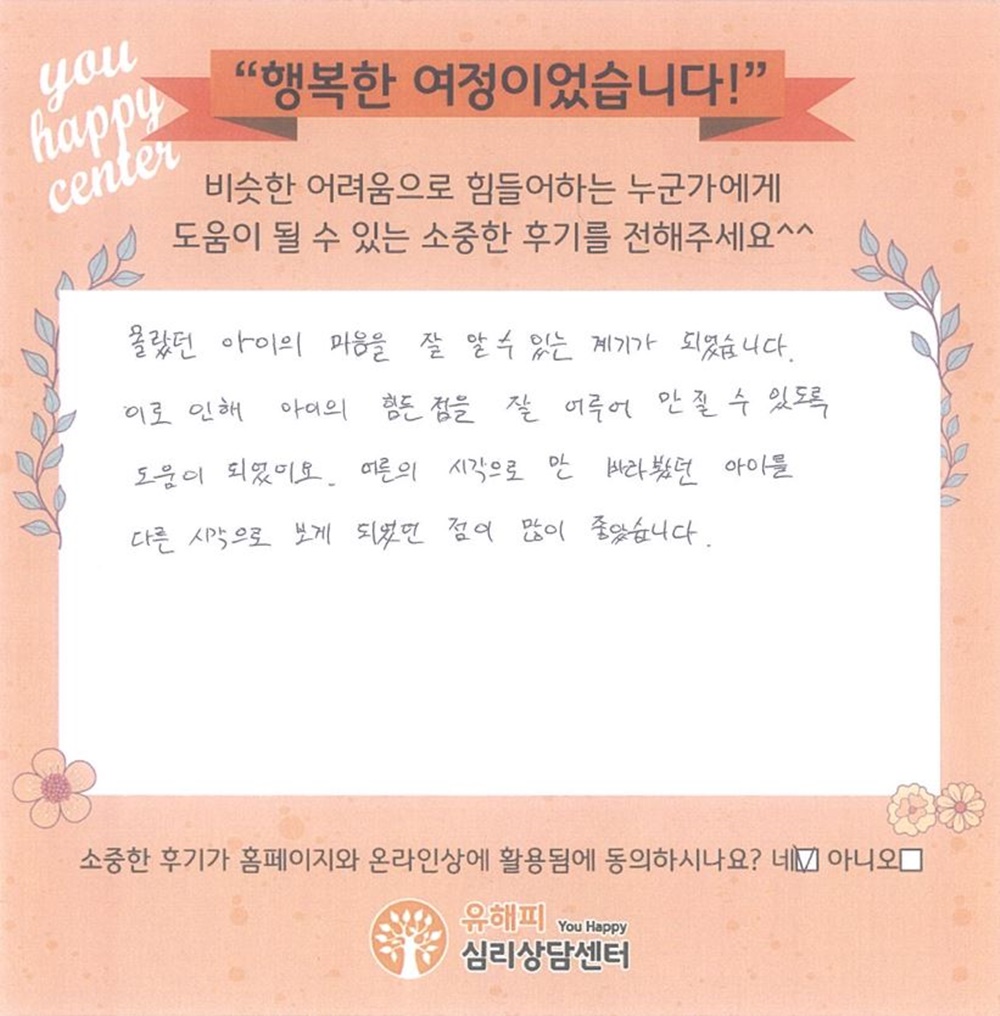 you
happy
center
“행복한 여정이었습니다!”
비슷한 어려움으로 힘들어하는 누군가에게
도움이 될 수 있는 소중한 후기를 전해주세요^^
몰랐던 아이의 마음을 잘 알 수 있는 계기가 되었습니다.
이로 인해 아이의 힘든 점을 잘 어루어 만질 수 있도록
도움이 되었어요. 어른의 시각으로 만 바라봤던 아이를
다른 시각으로 보게 되었던 점이 많이 좋았습니다.
소중한 후기가 홈페이지와 온라인상에 활용됨에 동의하시나요? 네☑ 아니오☐
유해피 You Happy
심리상담센터